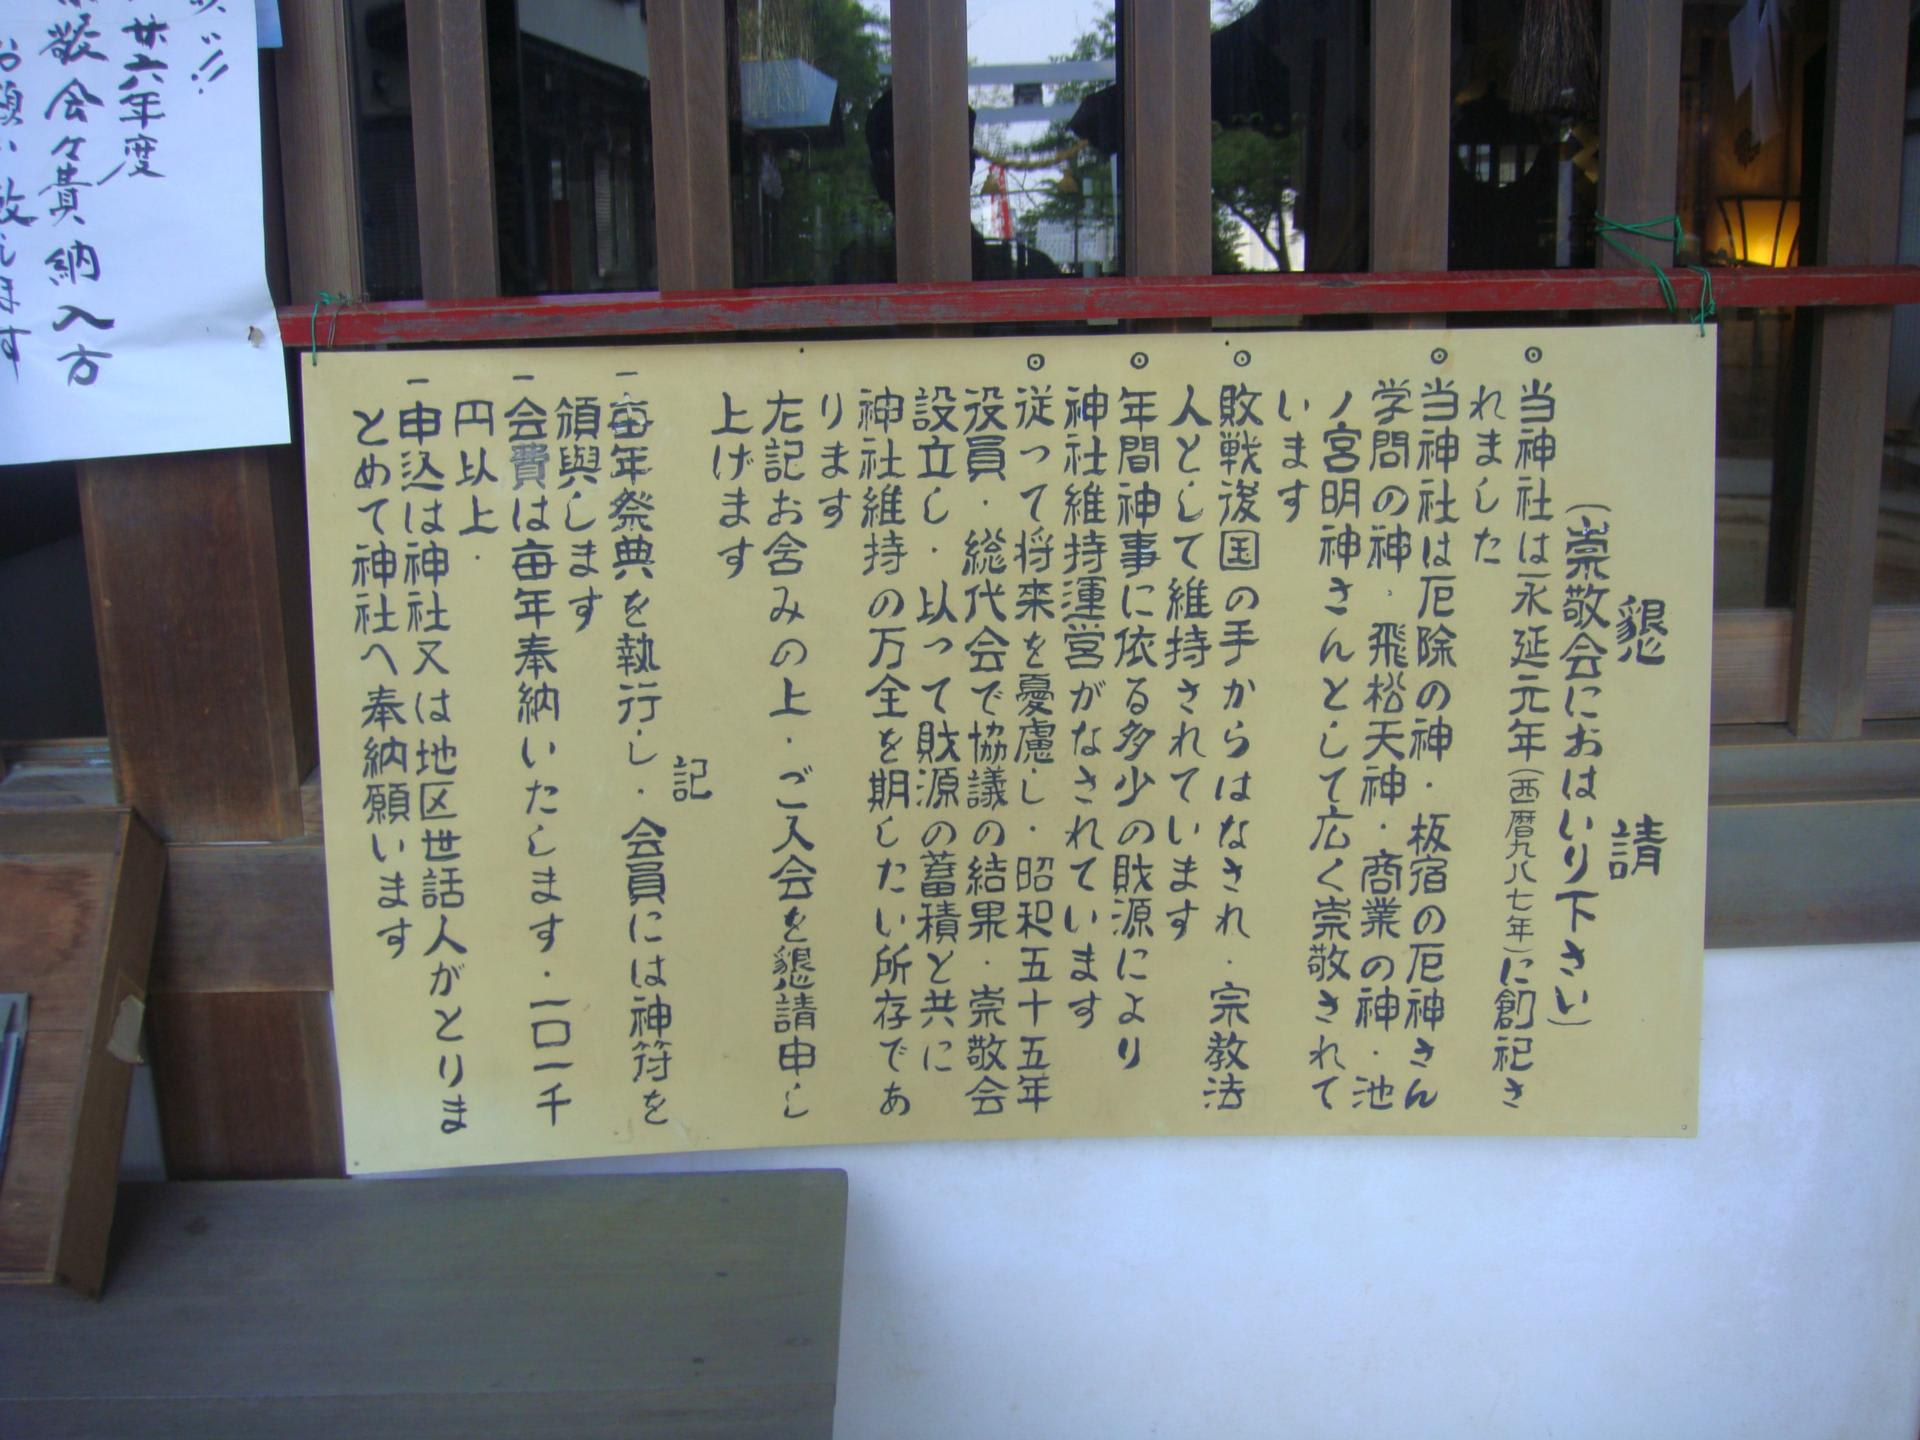 懇請
(崇敬会におはいり下さい)
⊙当神社は永延元年(西暦九八七年)に創祀さ
れました
⊙当神社は厄除の神・板宿の厄神さん
学問の神・飛松天神・商業の神・池
ノ宮明神さんとして広く崇敬されて
います
⊙敗戦後国の手からはなされ・宗教法
人として維持されています
⊙年間神事に依る多少の財源により
神社維持運営がなされています
⊙従って将来を憂慮し・昭和五十五年
役員・総代会で協議の結果・崇敬会
設立し・以って財源の蓄積と共に
神社維持の万全を期したい所存であ
ります
左記お含みの上・ご入会を懇請申し
上げます
記
一毎年祭典を執行し・会員には神符を
頒與します
一会費は毎年奉納いたします・一口一千
円以上・
一申込は神社又は地区世話人がとりま
とめて神社へ奉納願います
廿六年度
敬会々費納入方
お願い致します